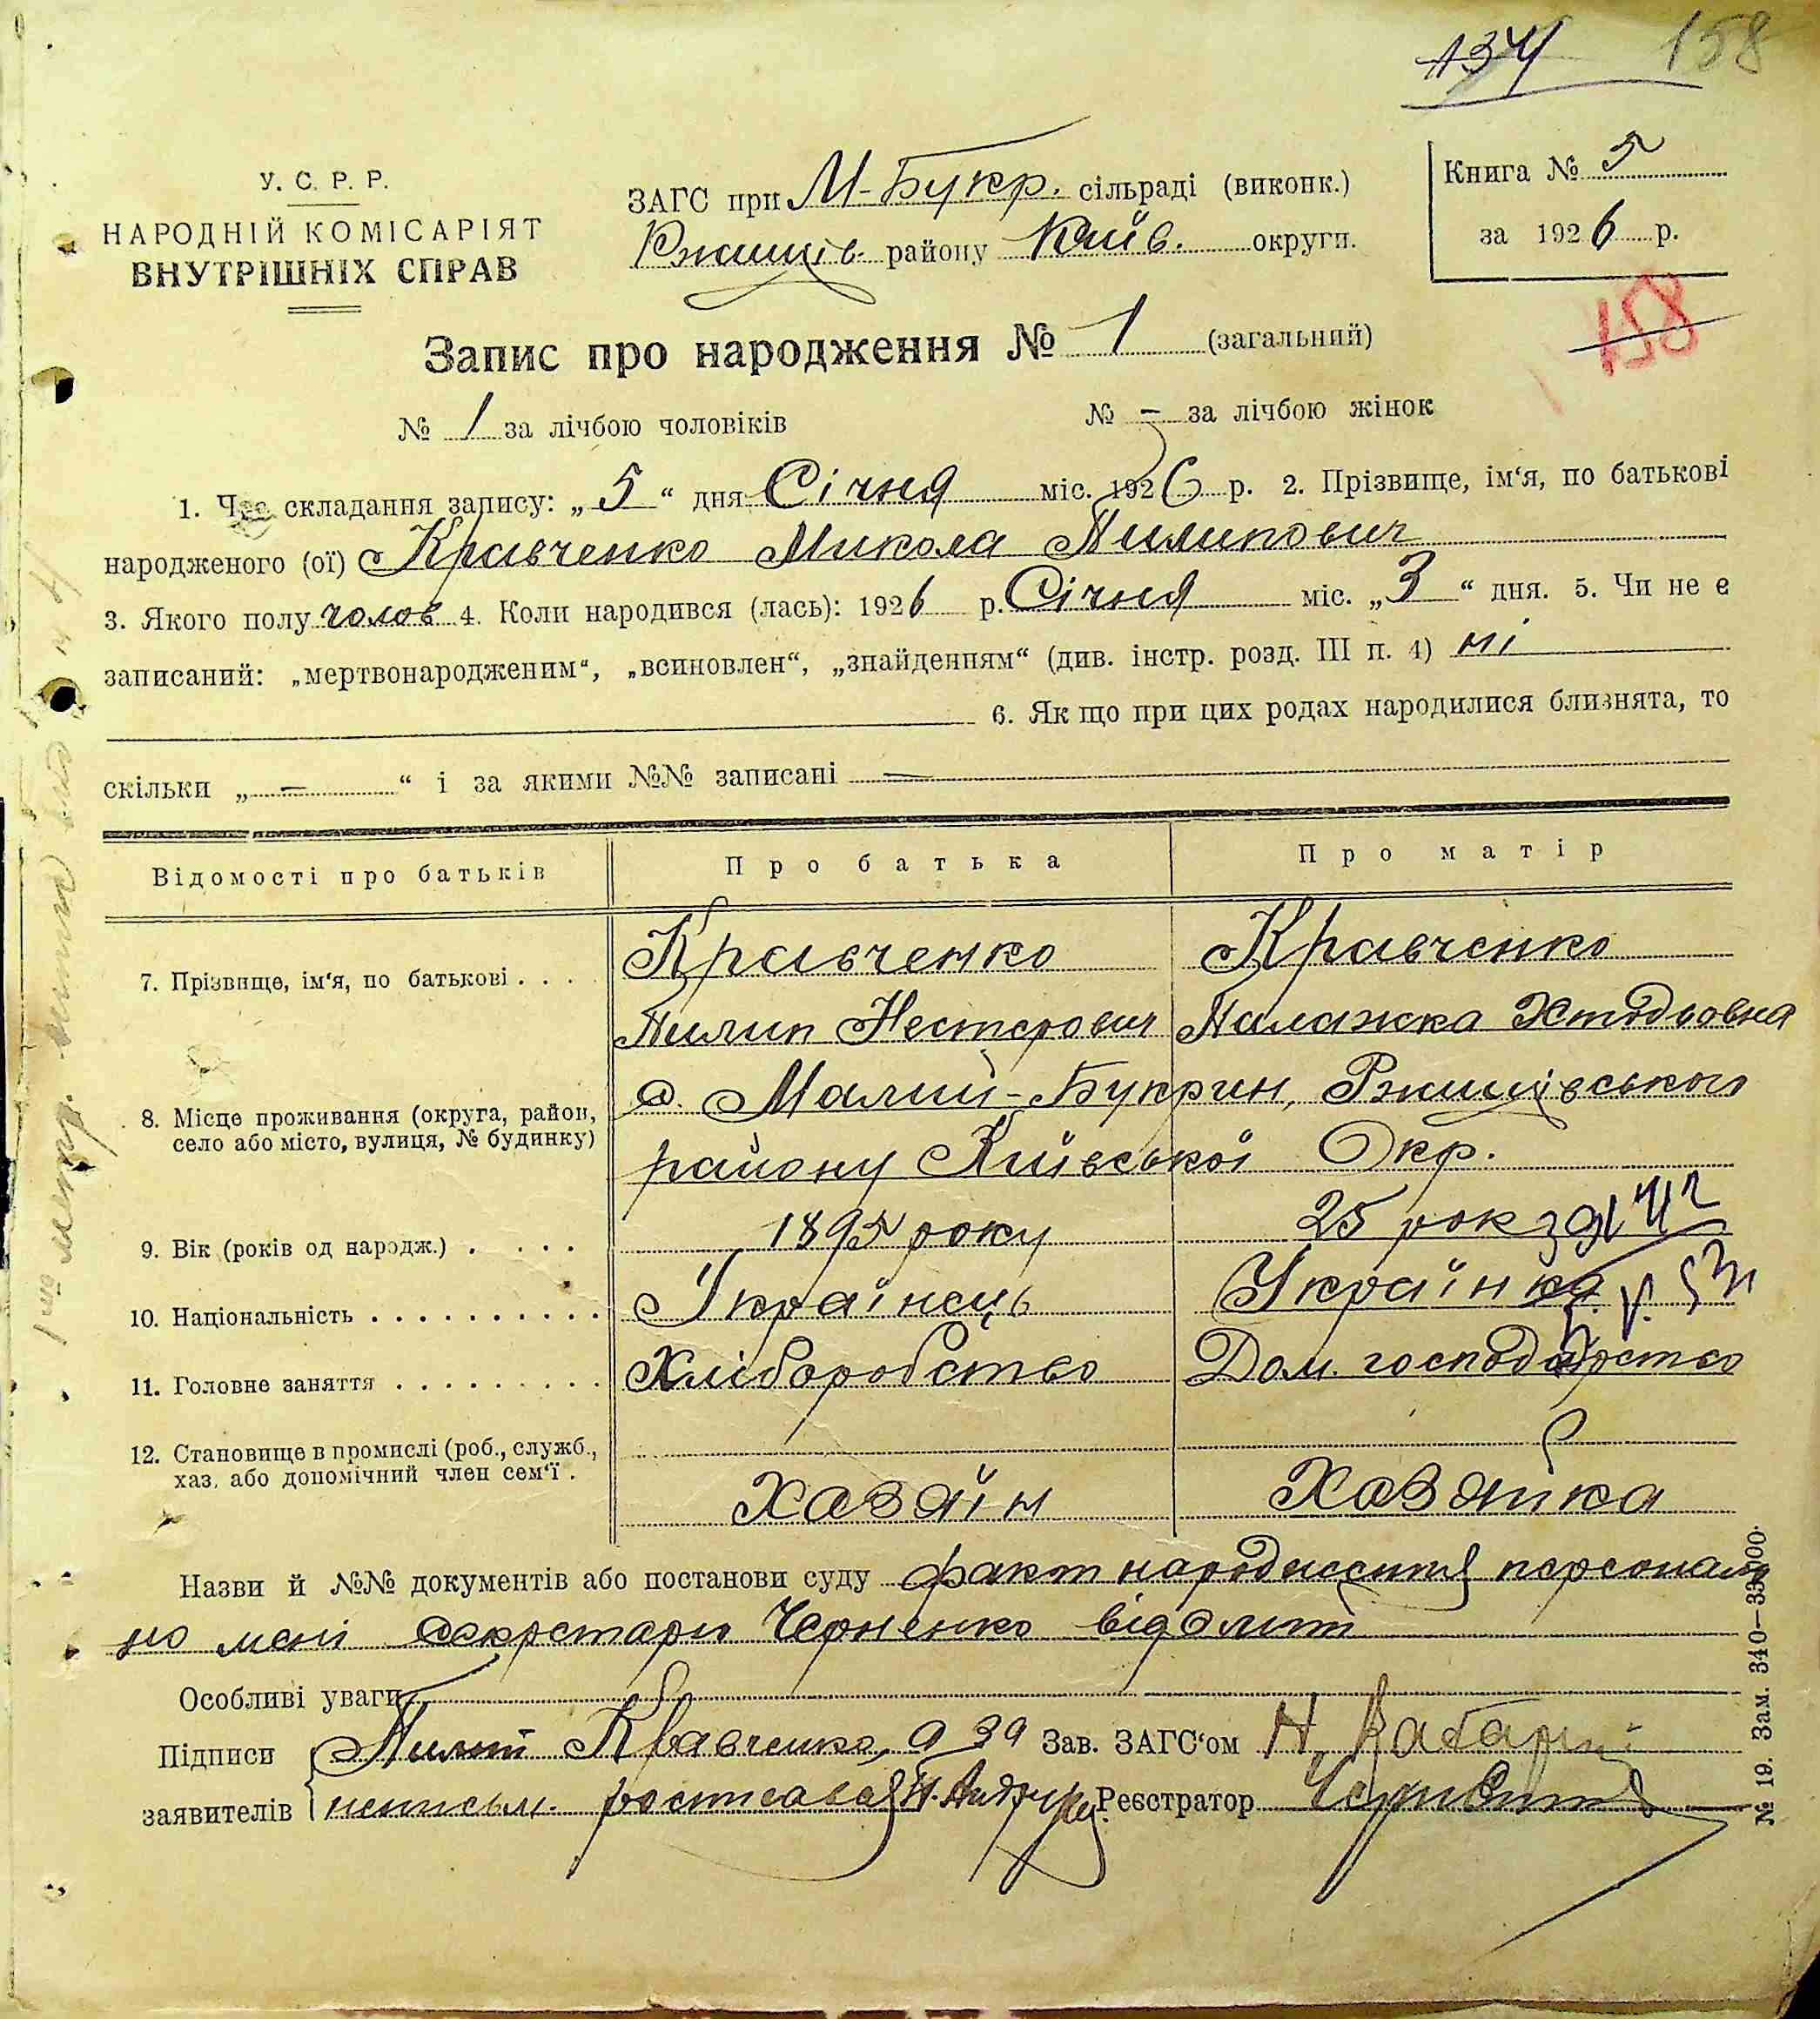 134 158
У. С. Р. Р.
НАРОДНІЙ КОМІСАРІЯТ
ВНУТРІШНІХ СПРАВ
ЗАГС при М-Букр. сільраді (виконк.)
Ржищів. району Київ. округи.
Книга № 5
за 1926 р.
158
Запис про народження № 1 (загальний)
№ 1 за лічбою чоловіків № — за лічбою жінок
1. Час складання запису: „5“ дня Січня міс. 1926 р. 2. Прізвище, ім‘я, по батькові
народженого (ої) Кравченко Микола Пилипович
3. Якого полу чолов 4. Коли народився (лась): 1926 р. Січня міс. „3“ дня. 5. Чи не є
записаний: „мертвонародженим“, „всиновлен“, „знайденням“ (див. інстр. розд. III п. 4) ні
6. Як що при цих родах народилися близнята, то
скільки „ — “ і за якими №№ записані —
Відомості про батьків Про батька Про матір
7. Прізвище, ім‘я, по батькові . . . . Кравченко Кравченко
Пилип Нестерович Палажка
8. Місце проживання (округа, район, село або місто, вулиця, № будинку) с. Малий-Букрин, Ржищівського
району Київської Окр.
9. Вік (років од народж.) . . . . 1895 року 25 рок
10. Національність . . . . . . . . . . Українець Українка
11. Головне заняття . . . . . . . . . Хліборобство Дом. господарство
12. Становище в промислі (роб., служб., хаз. або допомічний член сем‘ї . Хазяїн Хазяйка
Назви й №№ документів або постанови суду факт народження персональ
но мені секретарю Черненко відомий
Особливі уваги
Підписи Пилип Кравченко, а за Зав. ЗАГС‘ом Н.
заявителів неписьм. росписався Реєстратор
№ 19. Зам. 340—33000.